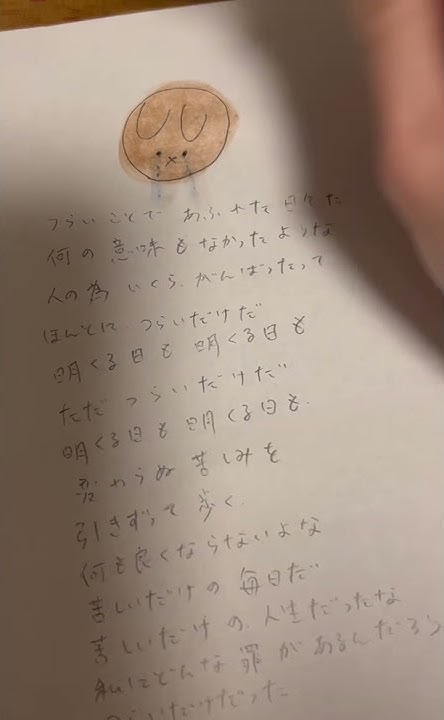 つらいことで あふれた日々だ
何の意味もなかったような
人の為 いくら がんばったって
ほんとに つらいだけだ
明くる日も 明くる日も
ただ つらいだけだ
明くる日も 明くる日も
変わらぬ 苦しみを
引きずって 歩く
何も良くならないよな
苦しいだけの 毎日だ
苦しいだけの 人生だったな
私にどんな罪があるんだろう
つらいだけだった